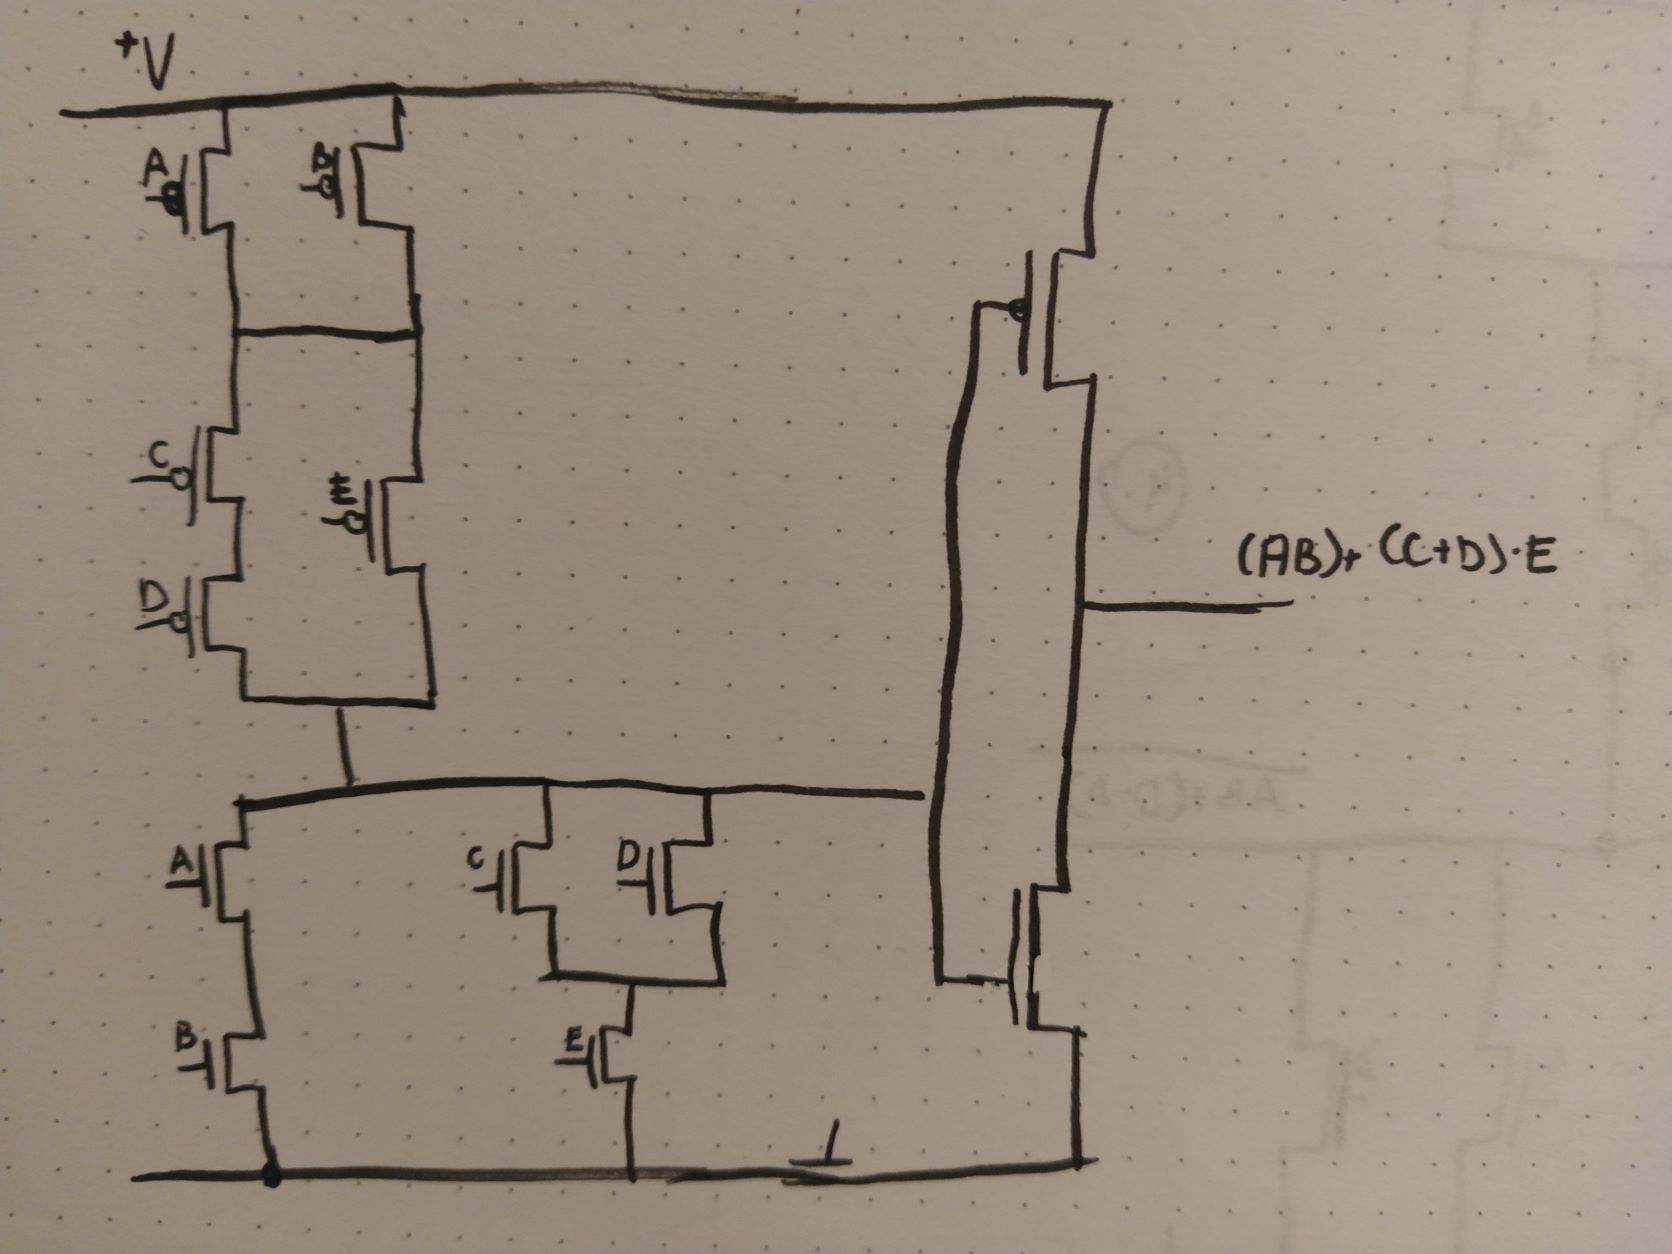 +V
A
B
C
E
D
(AB)+ (C+D)·E
A
C
D
B
E